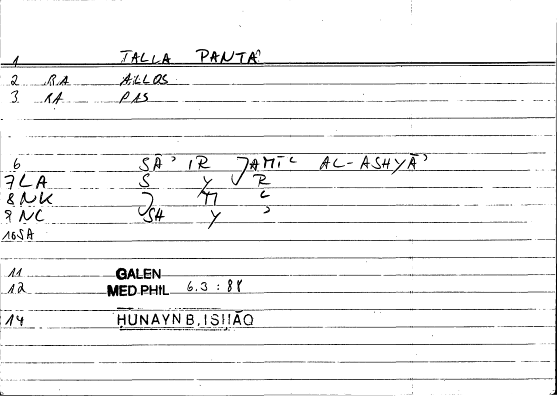 1 TALLA PANTA
2 RA ALLOS
3 RA PAS
6 SĀ' IR JAMĪ' AL-ASHYĀ'
7 LA S Y R
8 NK J M '
9 NC SH Y '
10 SA
11 GALEN
12 MED PHIL 6.3 : 8
14 HUNAYN B. ISḤĀQ